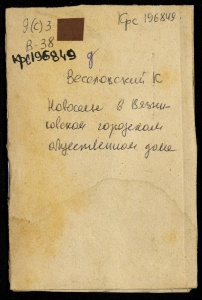 9(с)3
В-38
Крс 196849
Крс196849
Веселовский К
Новоселы в Вязни-
ковском городском
общественном доме